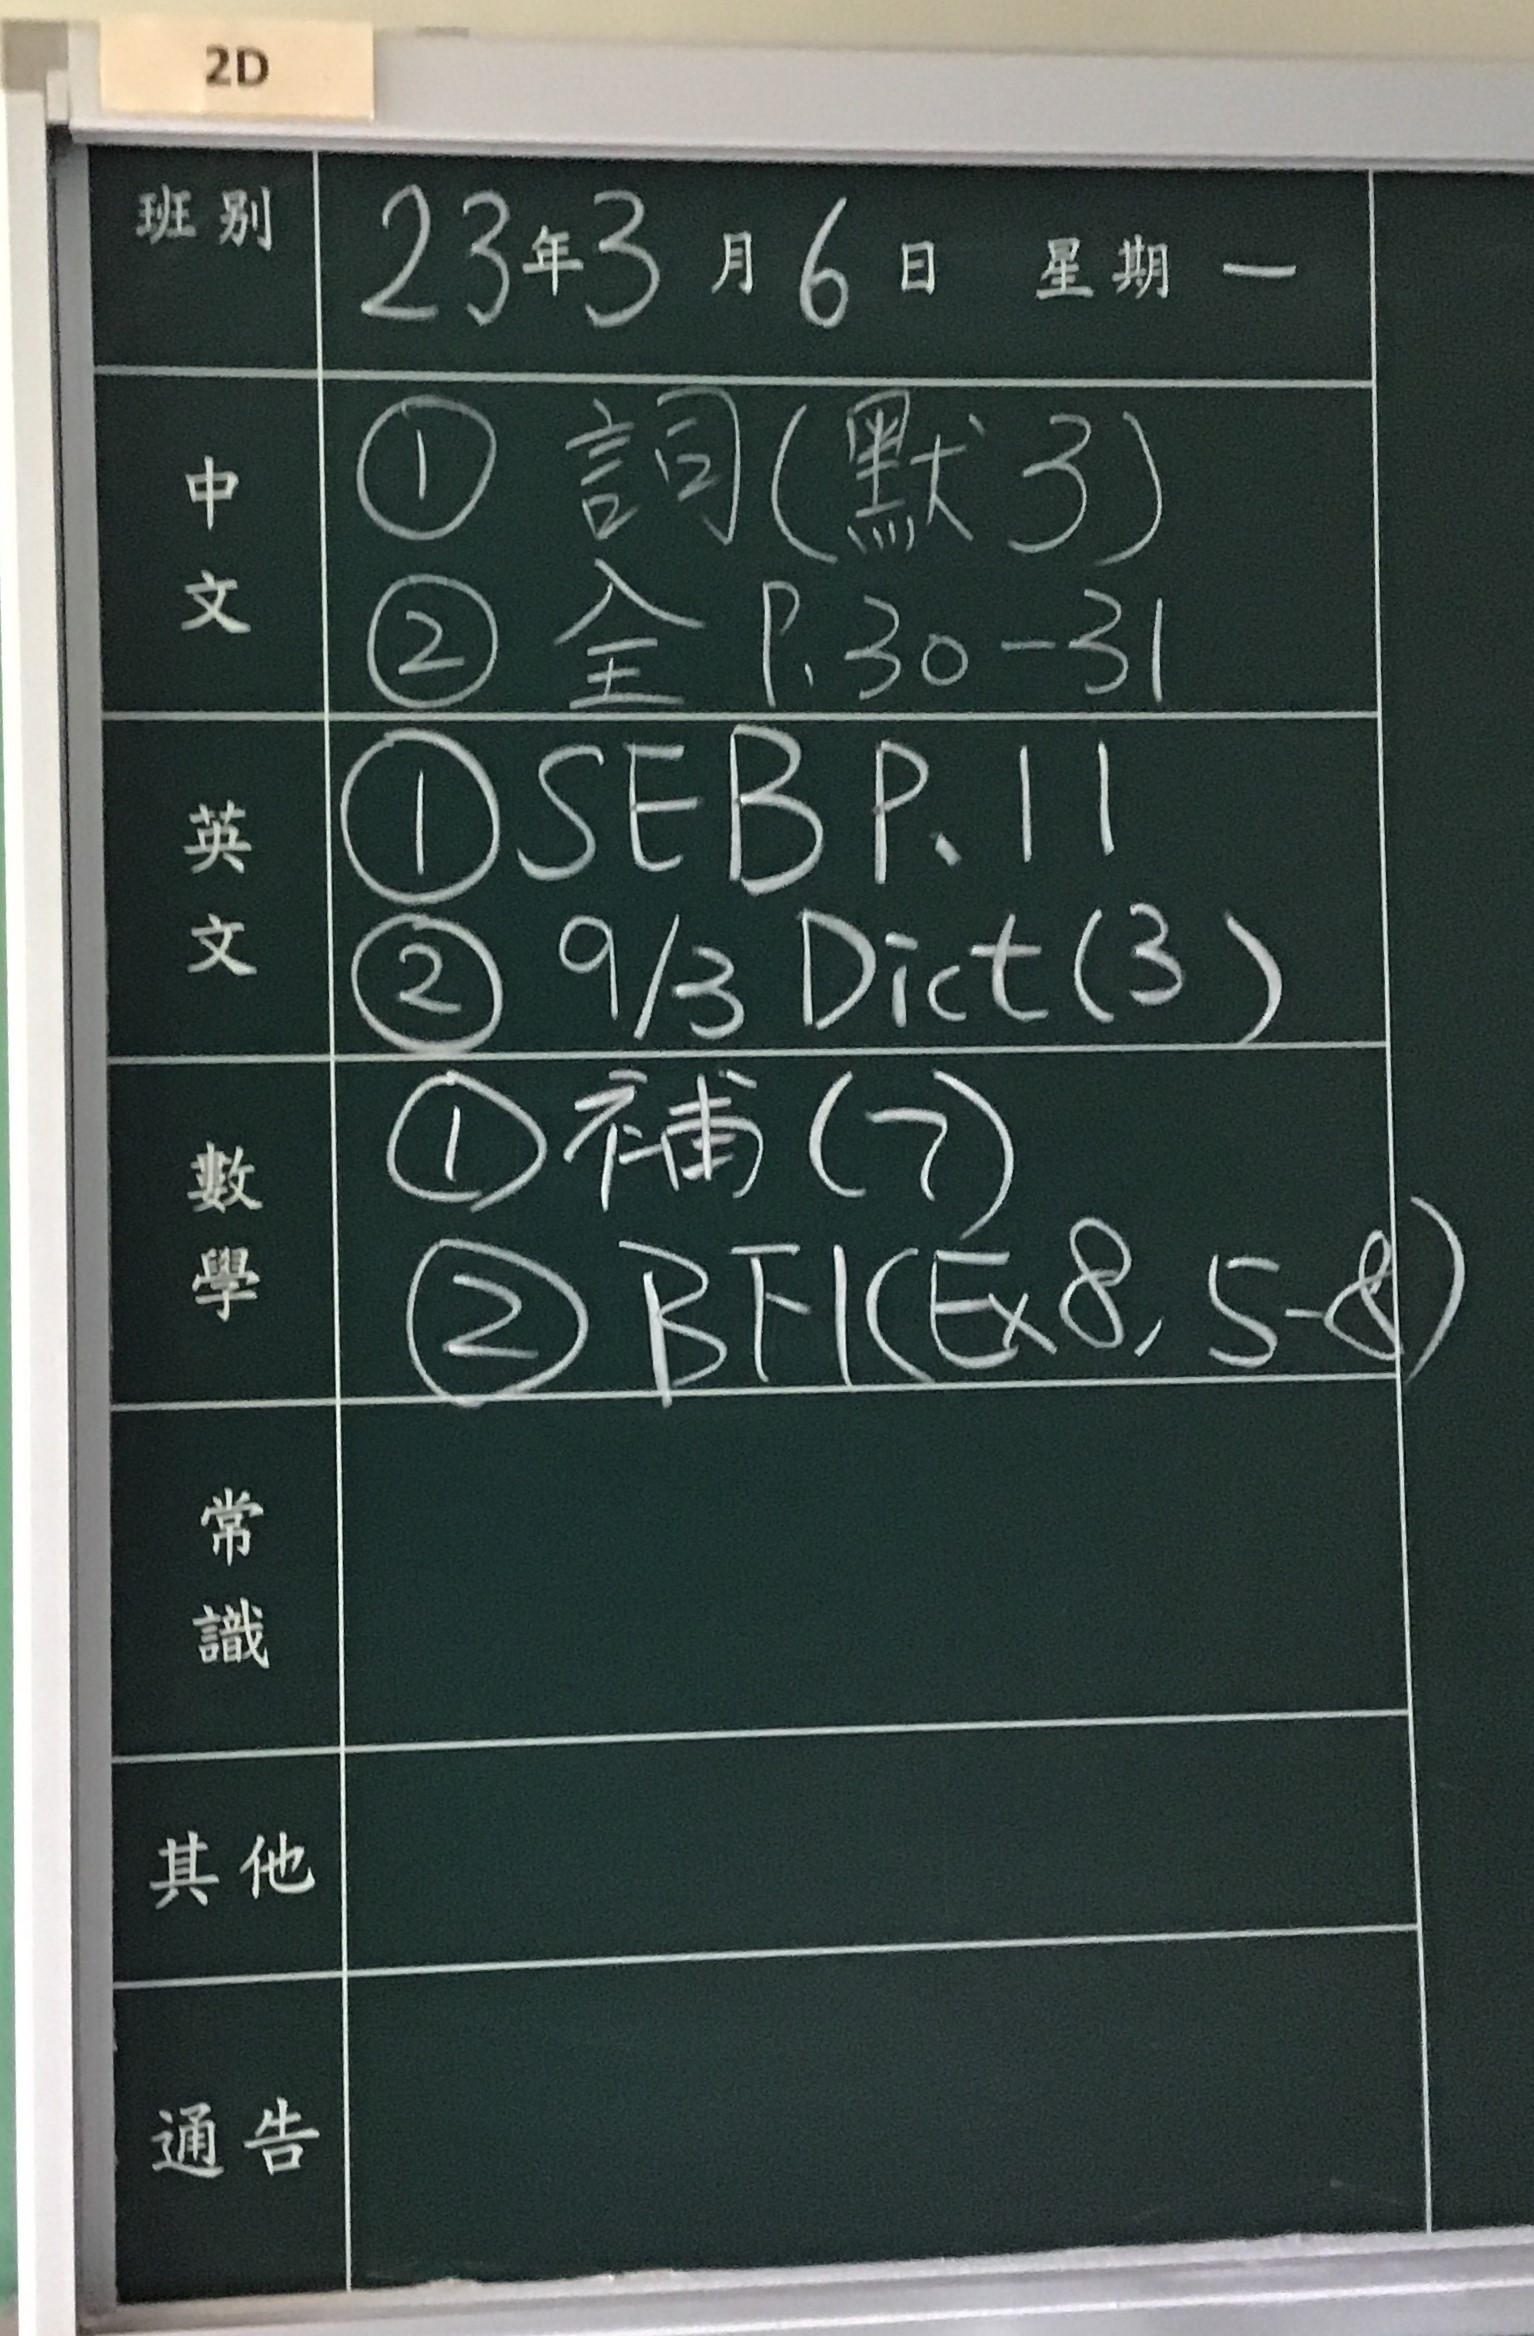 2D
班別 23年3月6日 星期一
中文 ① 詞(默3)
② 全 P.30-31
英文 ① SEB P.11
② 9/3 Dict(3)
數學 ① 補(7)
② B下1(Ex8, 5-8)
常識
其他
通告